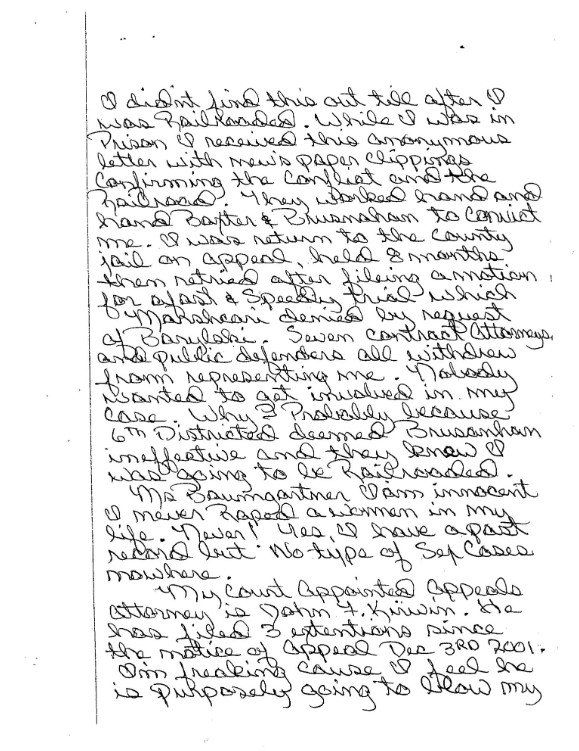 I didn't find this out till after I
was Railroaded. While I was in
Prison I received this anonymous
letter with new's paper clippings
confirming the conflict and the
Railroad. They worked hand and
hand Baxter & Brusnaham to convict
me. I was return to the county
jail on appeal, held 8 months
then retried after fileing a motion
for a fast & Speedy trial which
denied by request
of Barylski. Seven contract Attorneys,
and public defenders all withdrew
from representing me. Nobody
wanted to get involved in my
case. Why? Probably because
6th Districted deemed Brusanham
ineffective and they knew I
was going to be Railroaded.
Ms Baumgartner I am innocent
I never Raped a women in my
life. Never! Yes, I have a past
record but No type of Sex Cases
nowhere.
My Court Appointed Appeals
attorney is John F. Kirwin. He
has filed 3 extentions since
the notice of Appeal Dec 3RD 2001.
I'm freaking cause I feel he
is purposely going to blow my